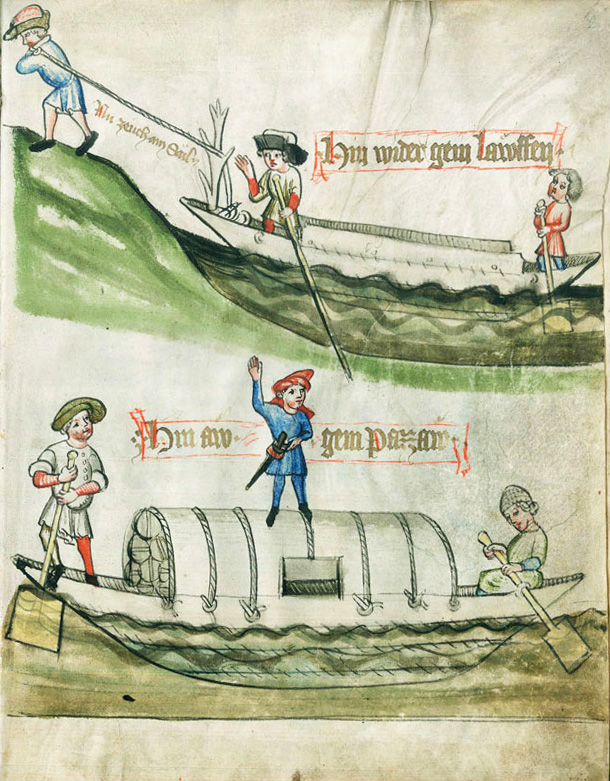 Nu zeuch am Sail
Hin wider gein lawffen
Hin aw gein Pazzaw